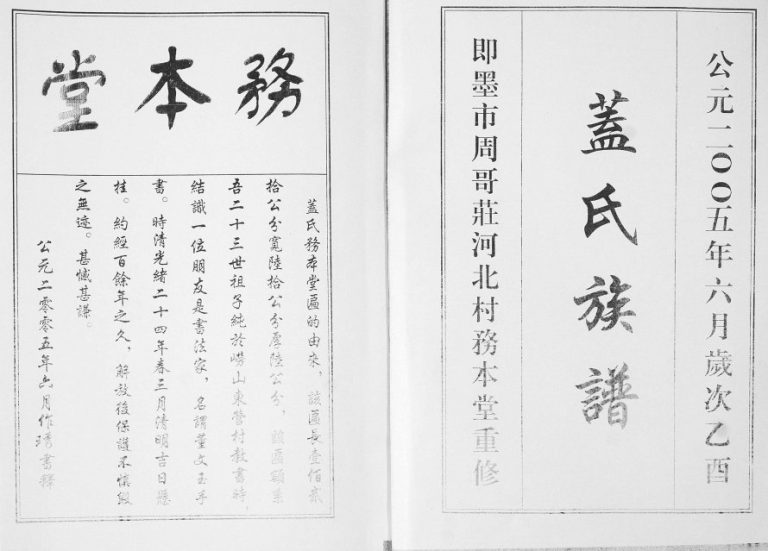 公元二〇〇五年六月歲次乙酉
蓋氏族譜
即墨市周哥莊河北村務本堂重修
務本堂
蓋氏務本堂匾的由來，該匾長壹佰貳
拾公分寬陸拾公分厚陸公分，該匾額系
吾二十三世祖子純於嶗山東營村教書時
結識一位朋友是書法家，名謂董文玉手
書。時清光緒二十四年春三月清明吉日懸
挂。約經百餘年之久，解放後保護不慎毀
之無迹。甚憾甚謙。
公元二零零五年六月作琇書釋